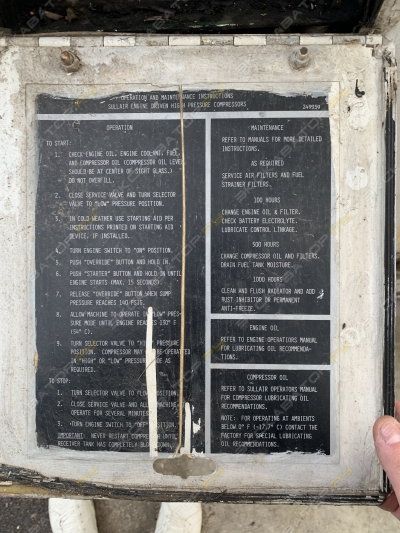 OPERATION AND MAINTENANCE INSTRUCTIONS
SULLAIR ENGINE DRIVEN HIGH PRESSURE COMPRESSORS
249939
OPERATION
TO START:
1. CHECK ENGINE OIL, ENGINE COOLANT, FUEL
AND COMPRESSOR OIL (COMPRESSOR OIL LEVEL
SHOULD BE AT CENTER OF SIGHT GLASS.)
DO NOT OVERFILL.
2. CLOSE SERVICE VALVE AND TURN SELECTOR
VALVE TO "LOW" PRESSURE POSITION.
3. IN COLD WEATHER USE STARTING AID PER
INSTRUCTIONS PRINTED ON STARTING AID
DEVICE, IF INSTALLED.
TURN ENGINE SWITCH TO "ON" POSITION.
5. PUSH "OVERRIDE" BUTTON AND HOLD IN.
6. PUSH "STARTER" BUTTON AND HOLD IN UNTIL
ENGINE STARTS (MAX. 15 SECONDS)
7. RELEASE "OVERRIDE" BUTTON WHEN SUMP
PRESSURE REACHES 140 PSI.
8. ALLOW MACHINE TO OPERATE IN "LOW" PRES-
SURE MODE UNTIL ENGINE REACHES 130° F
(54° C).
9. TURN SELECTOR VALVE TO "HIGH" PRESSURE
POSITION. COMPRESSOR MAY BE OPERATED
IN "HIGH" OR "LOW" PRESSURE MODE AS
REQUIRED.
TO STOP:
1. TURN SELECTOR VALVE TO "LOW" POSITION.
2. CLOSE SERVICE VALVE AND ALLOW MACHINE
OPERATE FOR SEVERAL MINUTES
3. TURN ENGINE SWITCH TO "OFF" POSITION.
IMPORTANT: NEVER RESTART COMPRESSOR UNTIL
RECEIVER TANK HAS COMPLETELY BLOWN DOWN.
MAINTENANCE
REFER TO MANUALS FOR MORE DETAILED
INSTRUCTIONS.
AS REQUIRED
SERVICE AIR FILTERS AND FUEL
STRAINER FILTERS.
100 HOURS
CHANGE ENGINE OIL & FILTER.
CHECK BATTERY ELECTROLYTE.
LUBRICATE CONTROL LINKAGE.
500 HOURS
CHANGE COMPRESSOR OIL AND FILTERS.
DRAIN FUEL TANK MOISTURE.
1000 HOURS
CLEAN AND FLUSH RADIATOR AND ADD
RUST INHIBITOR OR PERMANENT
ANTI-FREEZE.
ENGINE OIL
REFER TO ENGINE OPERATORS MANUAL
FOR LUBRICATING OIL RECOMMENDA-
TIONS.
COMPRESSOR OIL
REFER TO SULLAIR OPERATORS MANUAL
FOR COMPRESSOR LUBRICATING OIL
RECOMMENDATIONS.
NOTE: FOR OPERATING AT AMBIENTS
BELOW 0° F (-17.7° C) CONTACT THE
FACTORY FOR SPECIAL LUBRICATING
OIL RECOMMENDATIONS.